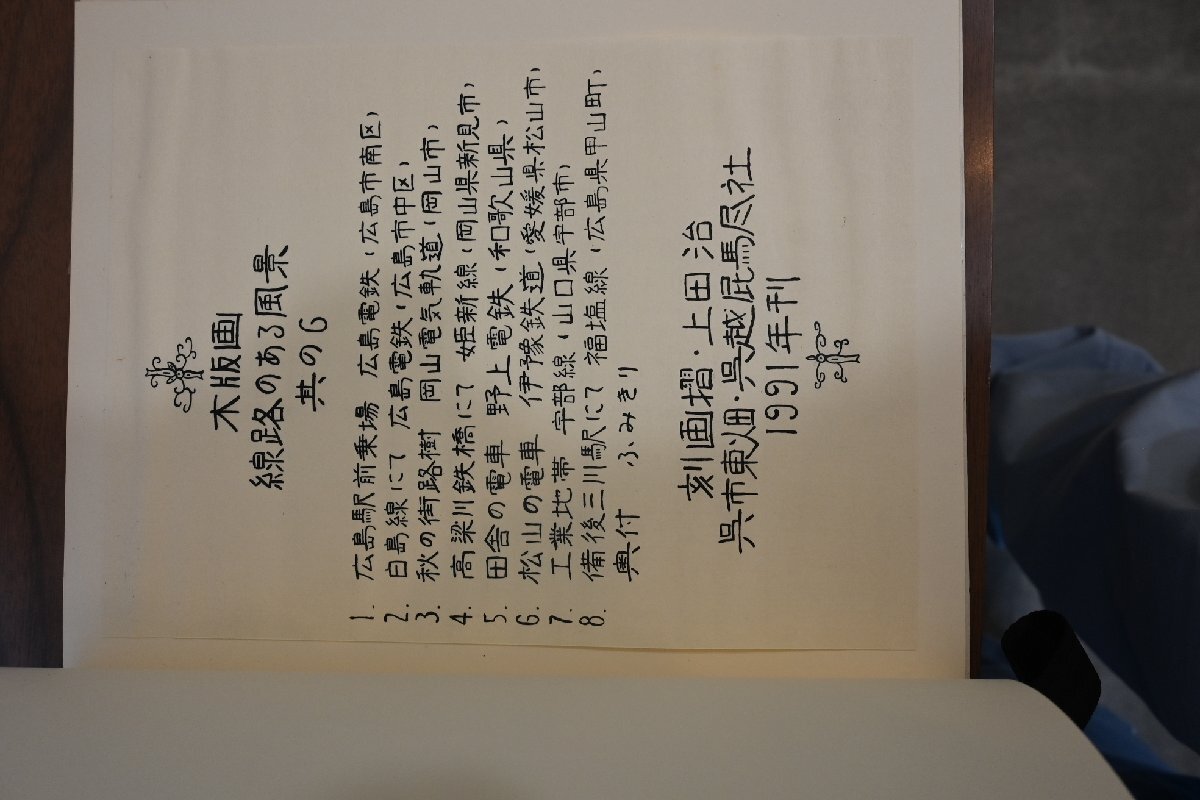 木版画
線路のある風景
其の6
1. 広島駅前乗場 広島電鉄（広島市南区）
2. 白島線にて 広島電鉄（広島市中区）
3. 秋の街路樹 岡山電気軌道（岡山市）
4. 高梁川鉄橋にて 姫新線（岡山県新見市）
5. 田舎の電車 野上電鉄（和歌山県）
6. 松山の電車 伊予鉄道（愛媛県松山市）
7. 工業地帯 宇部線（山口県宇部市）
8. 備後三川駅にて 福塩線（広島県甲山町）
奥付 ふみきり
刻画摺・上田治
呉市東畑・呉越屁馬尽社
1991年刊